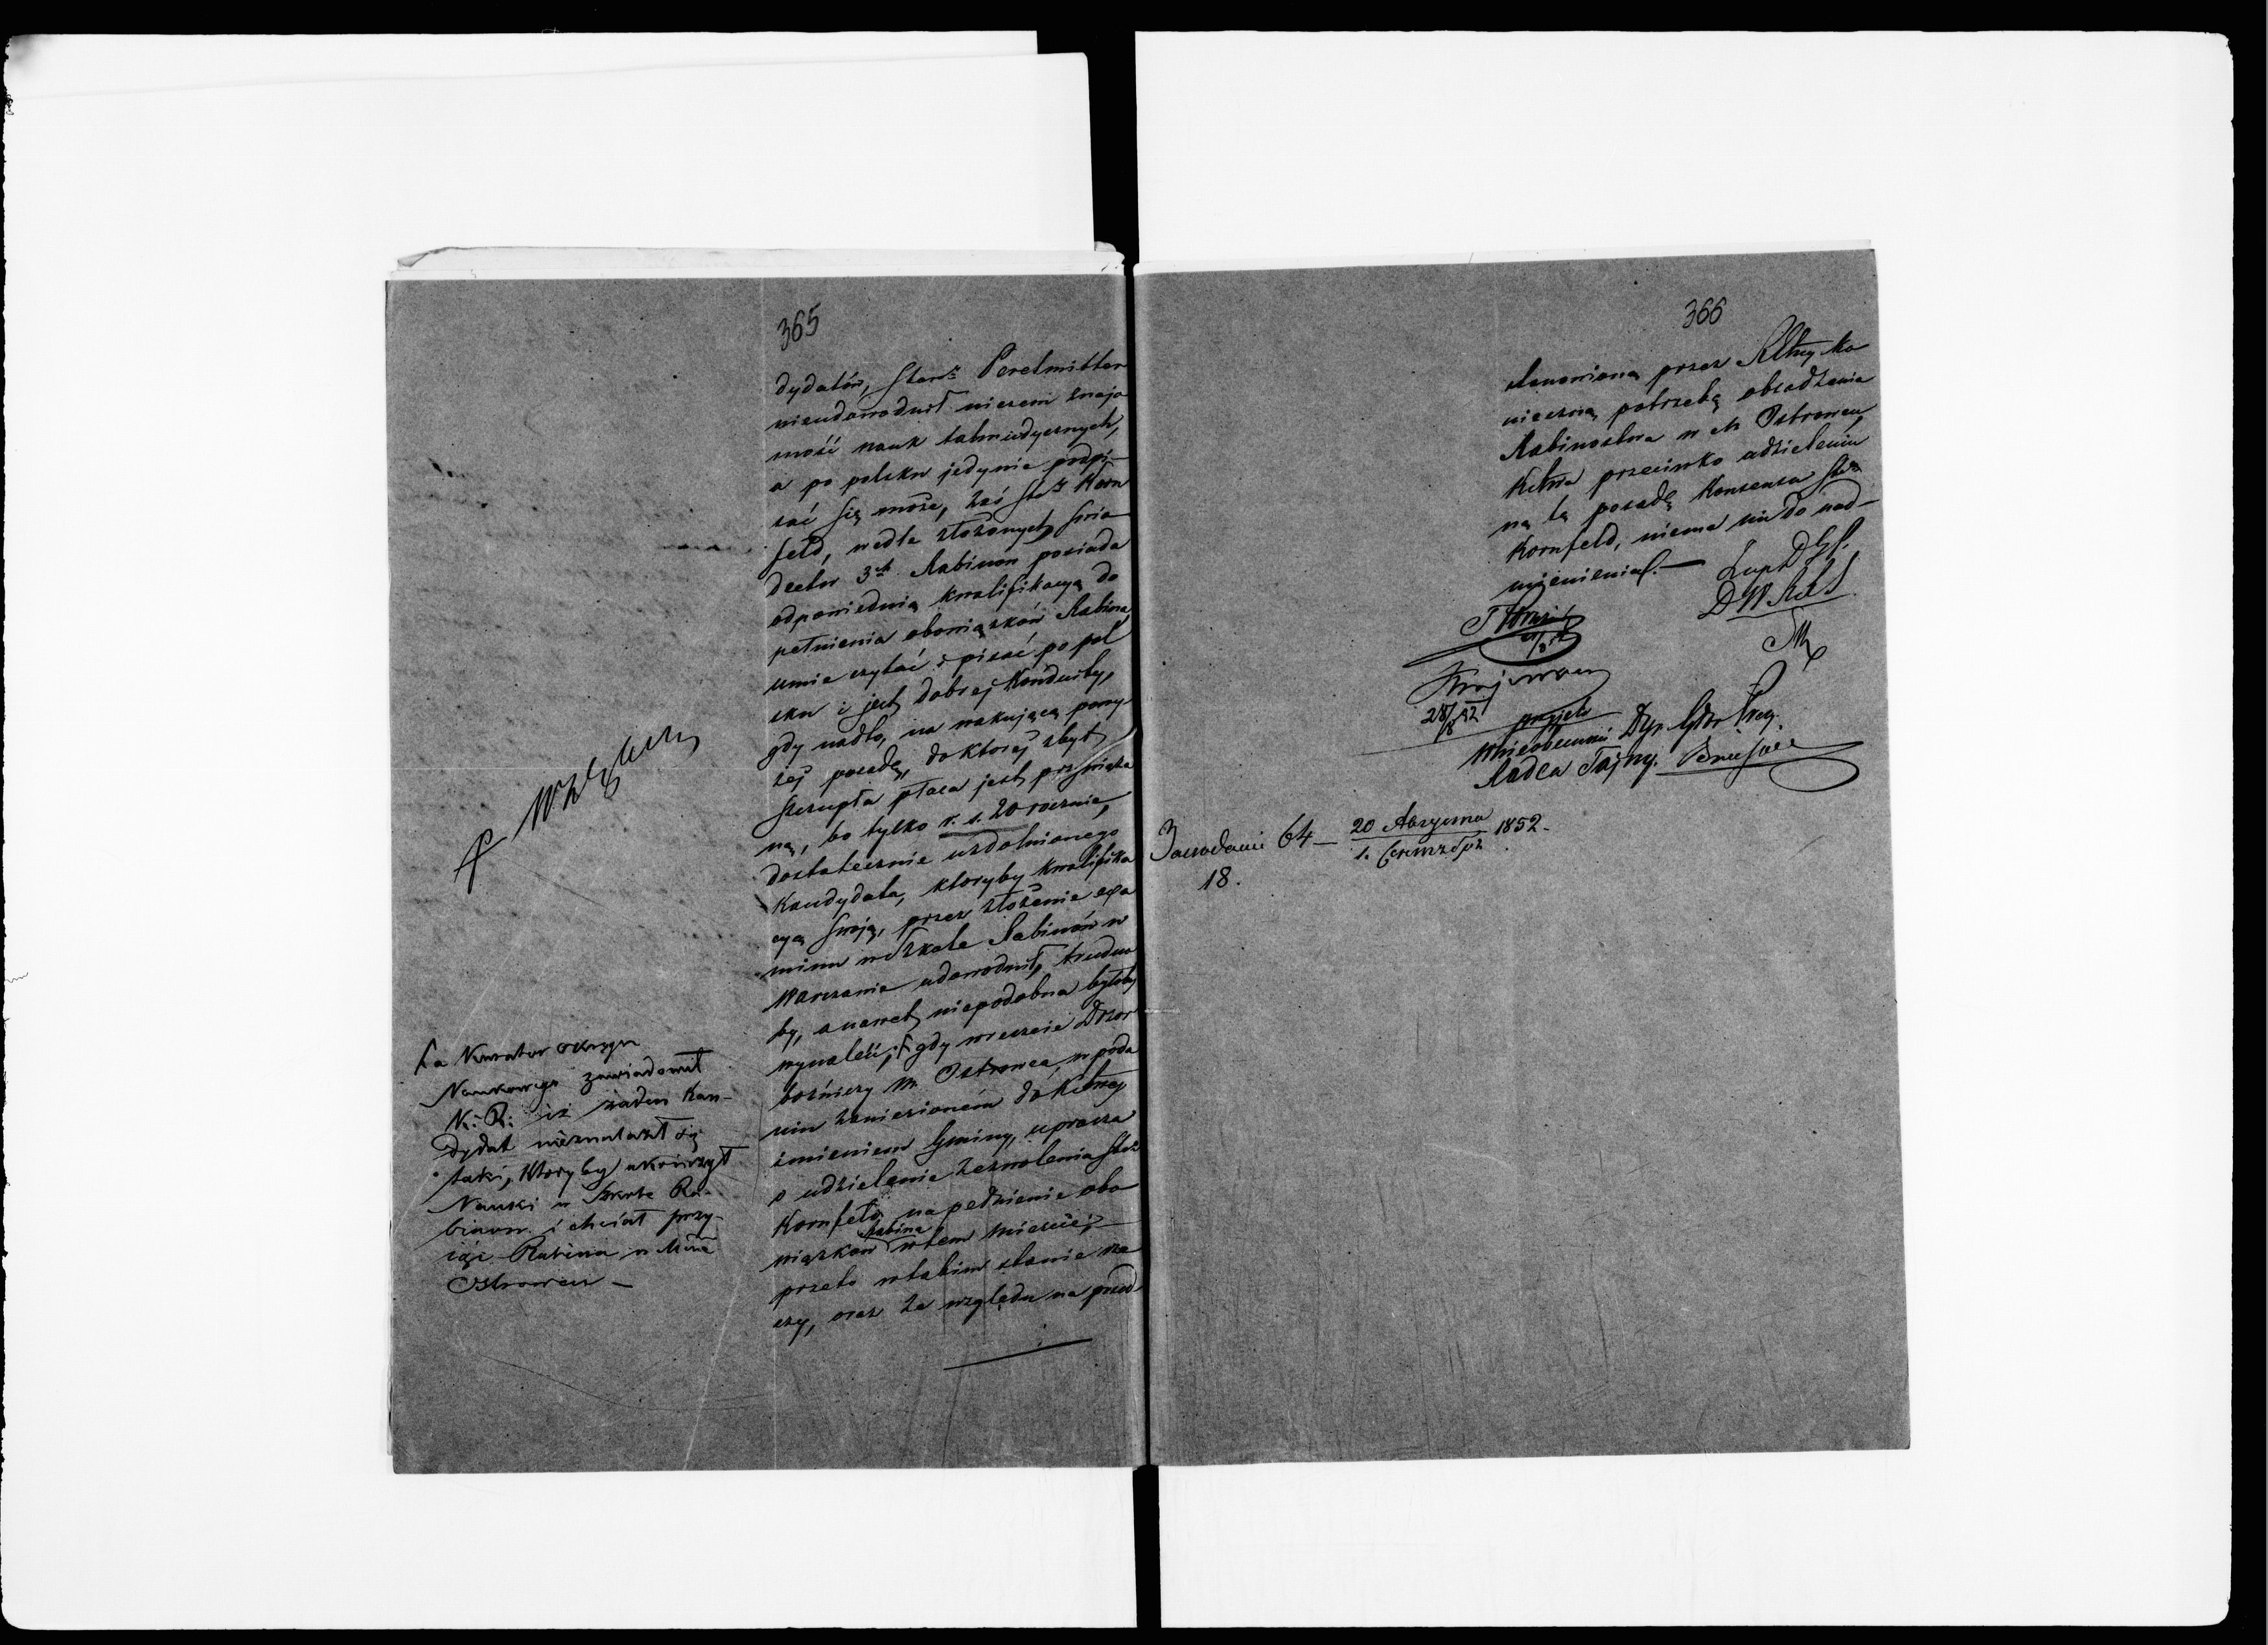 365
dydatów, Starz. Perelmitter
nieudowodnił niczem znajo
mość nauk talmudycznych,
a po polsku jedynie podpi-
sać się może, zaś Stz. Korn
feld, wedle złożonych świa
dectw 3ch Rabinów posiada
odpowiednią kwalifikacyą do
pełnienia obowiązków Rabina,
umie czytać i pisać po pol
sku i jest dobrej konduity,
gdy nadto, na wakującą powy-
żej posadę, do której zbyt
szczupła płaca jest przywiąza
ną, bo tylko r. s. 20 rocznie,
dostatecznie uzdolnionego
Kandydata, któryby kwalifika
cyą swoją, przez złożenie exa
minu w Szkole Rabinów w
Warszawie udowodnił, trudno
by, a nawet niepodobna byłoby
wynaleść; gdy wreszcie Dozór
bożniczy M. Ostrowca, w poda
niu zaniesionem do
imieniem Gminy, uprasza
o udzielenie zezwolenia Stz.
Kornfeld na pełnienie obo
wiązków Rabina w tem mieście;
przeto w takim stanie rze
czy, oraz ze względu na przed
a Kurator okręgu
Naukowego zawiadomił
K: R: iż żaden Kan-
dydat nieznalazł się
taki, któryby ukończył
Nauki w Szkole Ra-
binów i chciał przy-
jąć Rabina w Mieście
Ostrowcu —
366
stawioną przez ko
nieczną potrzebę obsadzenia
Rabinostwa w m. Ostrowcu,
przeciwko udzieleniu
na tę posadę Konsensu Stz.
Kornfeld, niema nic do nad-
mienienia. —
28/8 52
przyjęto
W nieobecności Dyr. Głów. Prez.
Radca Tajny.
Posiedzenie 64 — 20 Sierpnia / 1. Września 1852.
18.